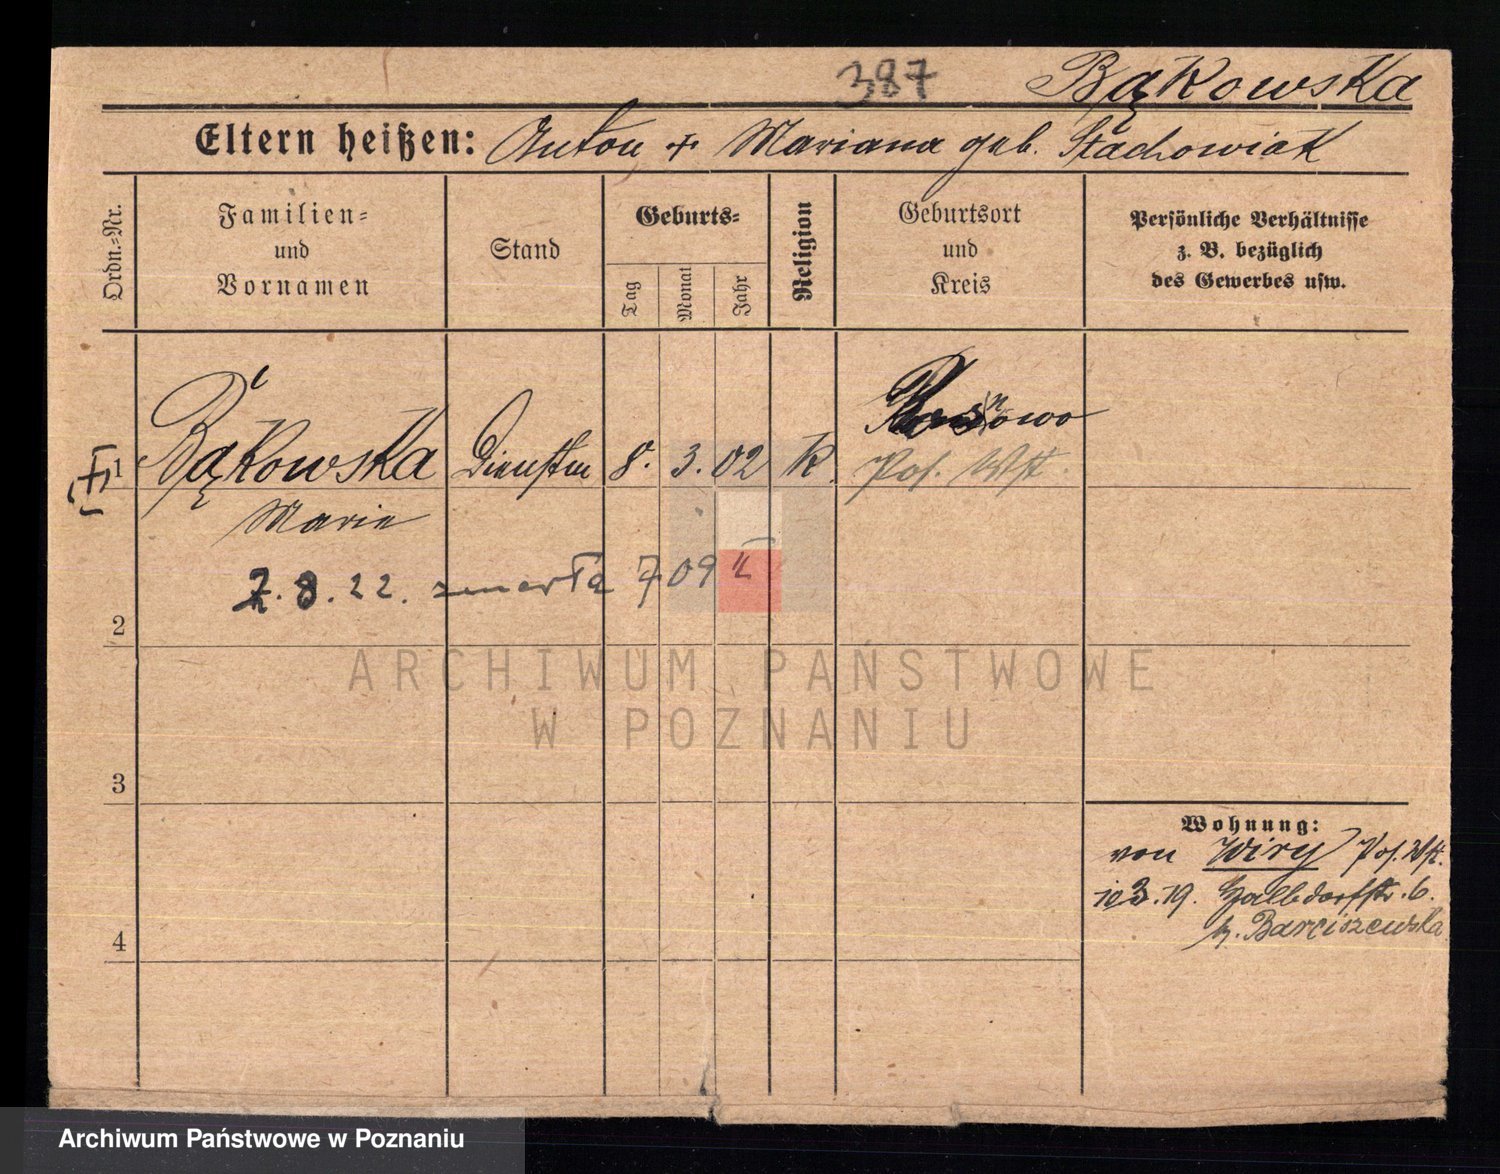 387 Bąkowska
Eltern heißen: Anton + Mariana geb. Stachowiak
Ordn.-Nr.
Familien-
und
Vornamen
Stand
Geburts-
Tag
Monat
Jahr
Religion
Geburtsort
und
Kreis
Persönliche Verhältnisse
z. B. bezüglich
des Gewerbes usw.
1 Bąkowska Dienstm 8. 3. 02 K
Pos. Wst.
Marie
7.8.22. zmarła 709
2
ARCHIWUM PAŃSTWOWE
W POZNANIU
3
Wohnung:
von Wiry Pos. Wst.
10 3. 19. Halbdorfstr. 6.
b. Barciszewska
4
Archiwum Państwowe w Poznaniu